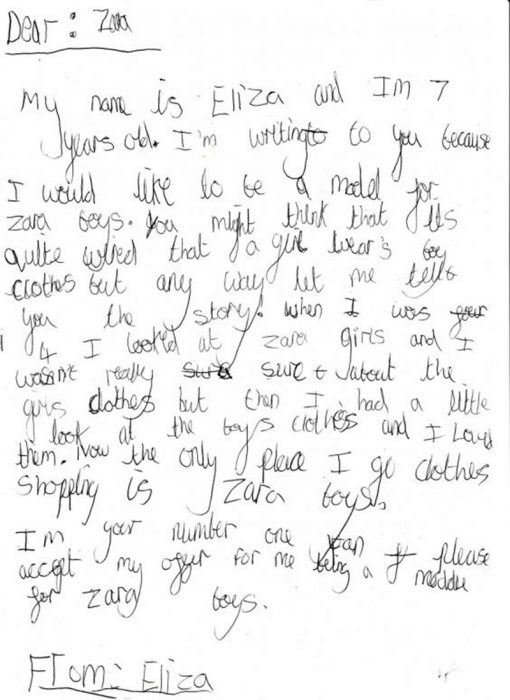 Dear: Zara
My name is Eliza and Im 7
years old. I'm writing to you because
I would like to be a model for
zara boys. You might think that its
quite wired that a girl wear's boy
clothes but any way let me tell
you the story! when I was
4 I looked at zara girls and I
wasn't really sure about the
girls clothes but then I had a little
look at the boys clothes and I Loved
them. Now the only place I go clothes
Shopping is Zara boys.
I'm your number one fan please
accept my offer for me being a moddle
for zara boys.
From: Eliza